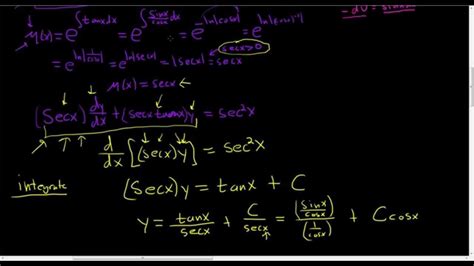 μ(x)=e^{∫tanxdx} = e^{∫sinx/cosx dx} = e^{-ln|cosx|} = e^{ln|cosx|^{-1}}
-du = sinxdx
= e^{ln|1/cosx|} = e^{ln|secx|} = |secx| = secx
secx>0
μ(x) = secx ←
(Secx) dy/dx + (secxtanx)y = sec²x
d/dx [(secx)y] = sec²x
integrate
(Secx)y = tanx + C
y = tanx/secx + C/secx = (sinx/cosx)/(1/cosx) + Ccosx